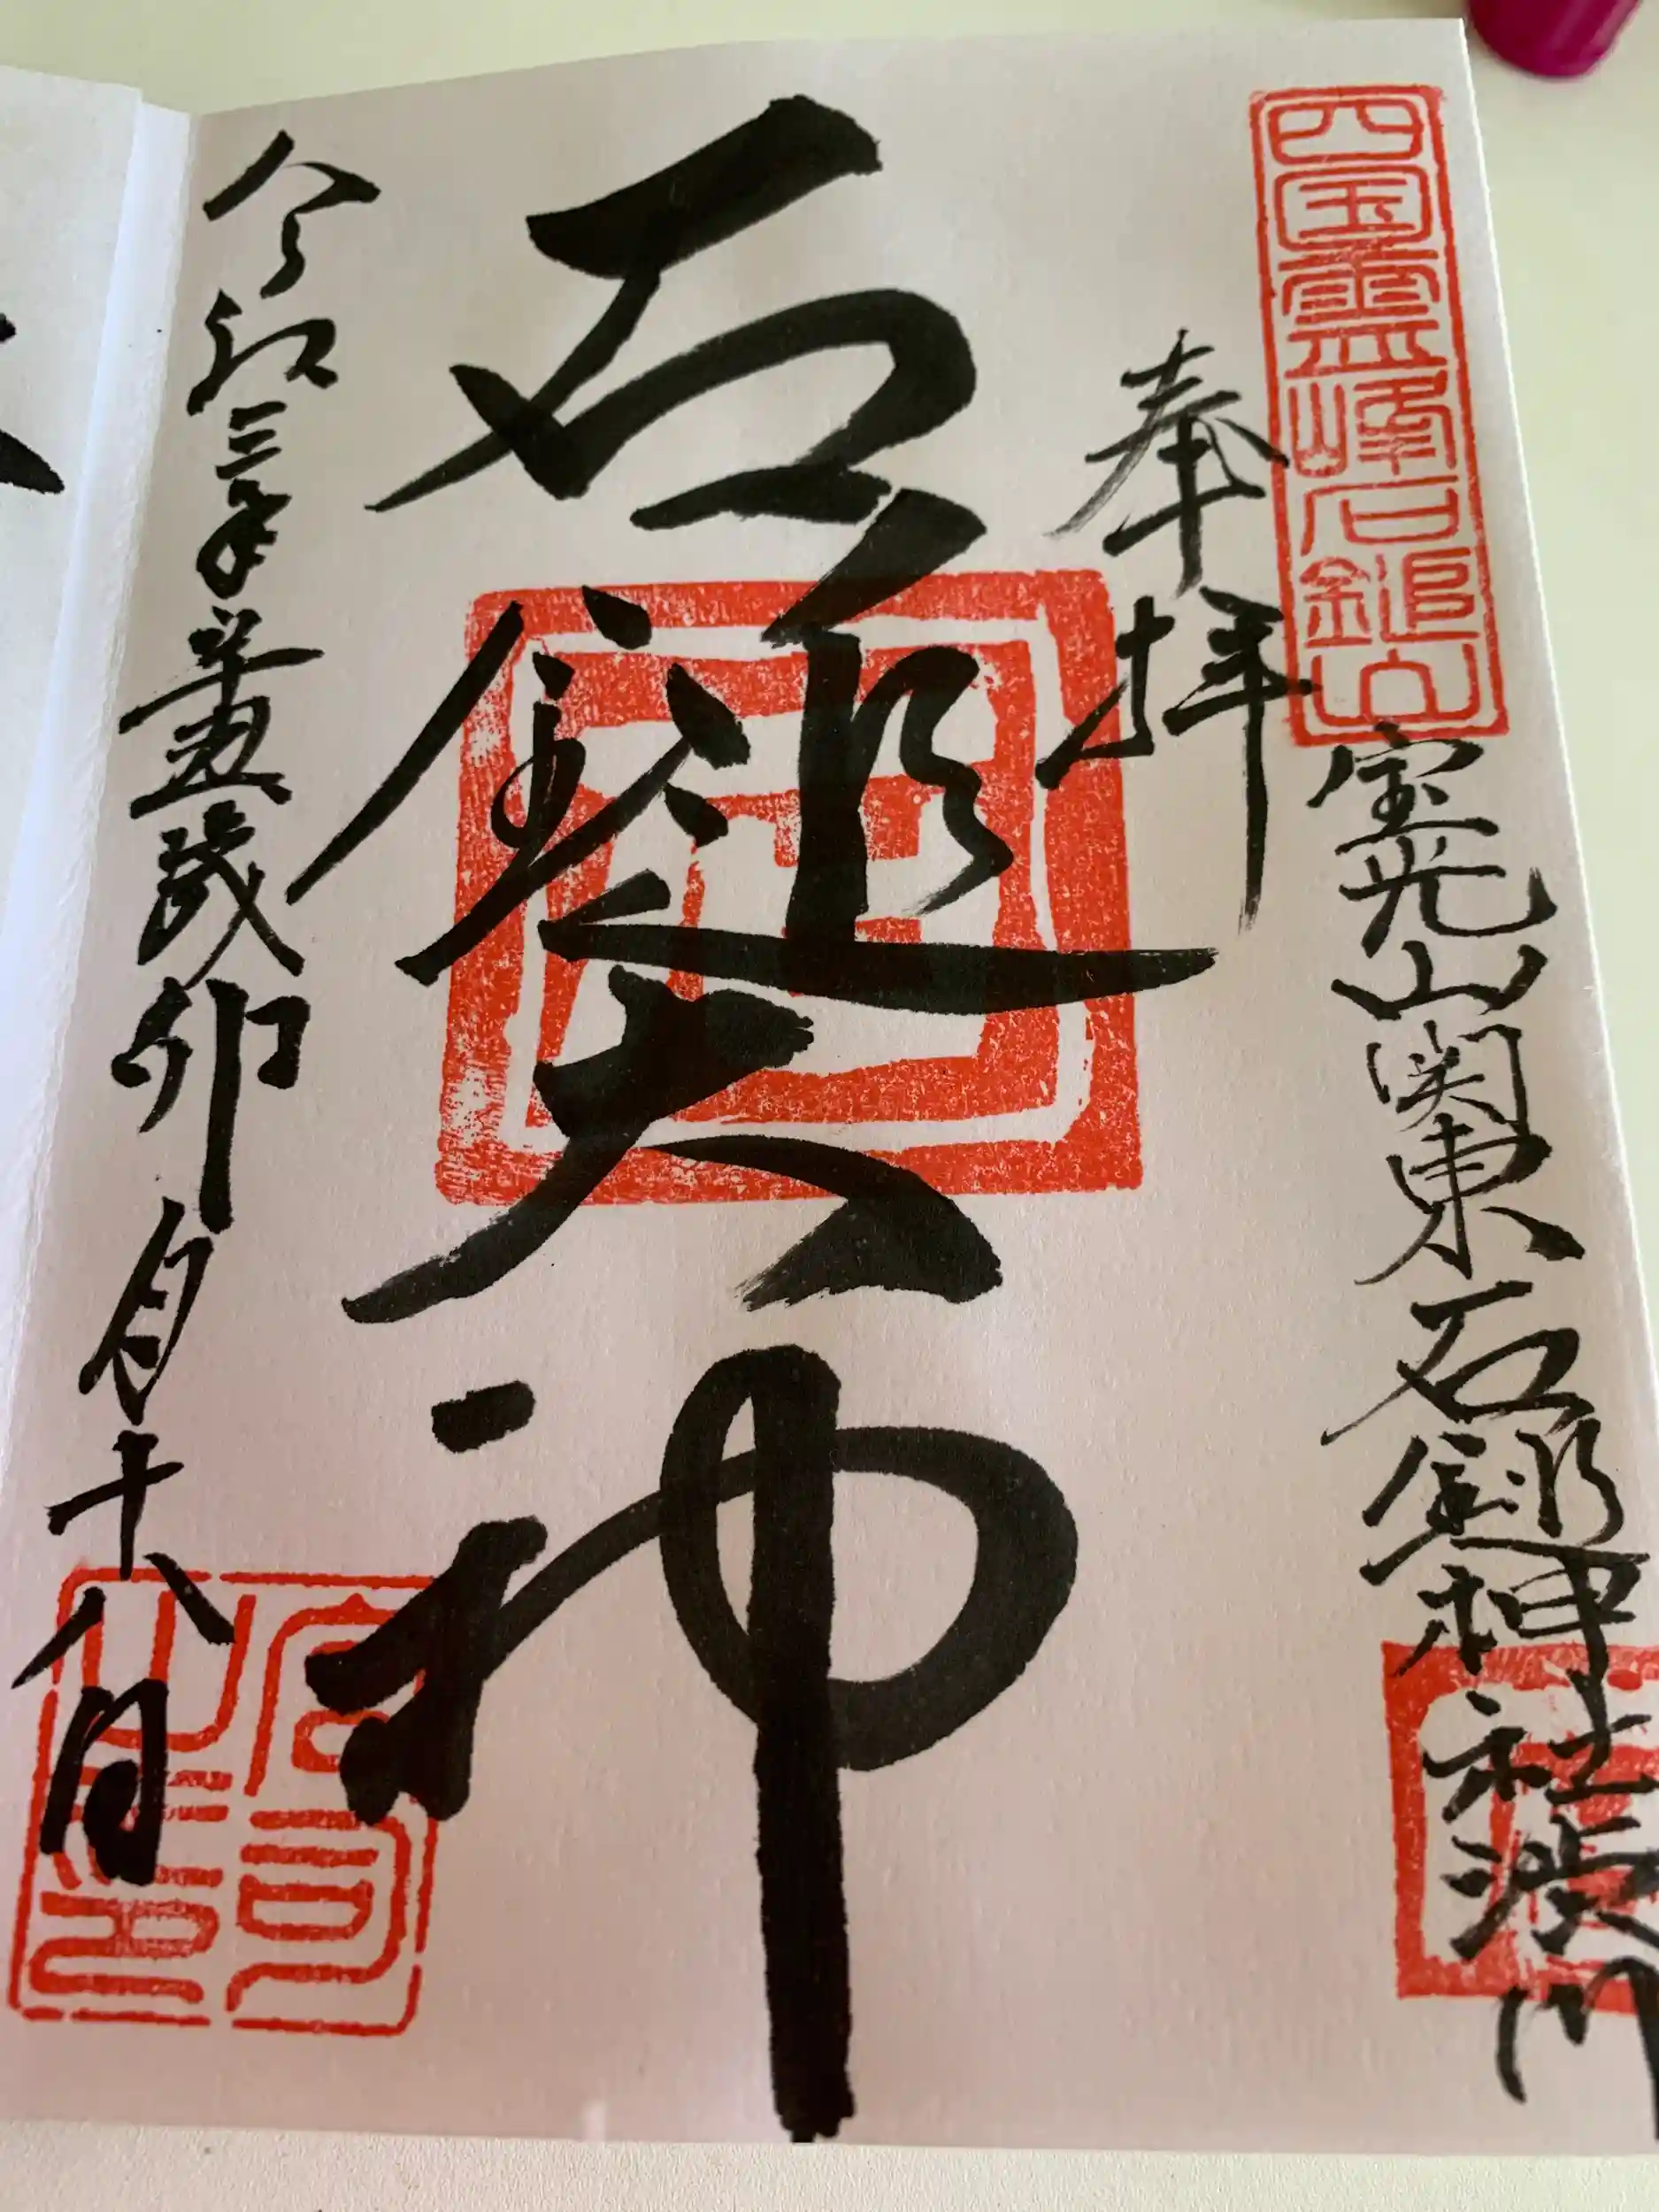 四国霊峰石鎚山
宝光山関東石鎚神社渋川
奉拝
石鎚大神
令和三年辛丑歳卯月十八日